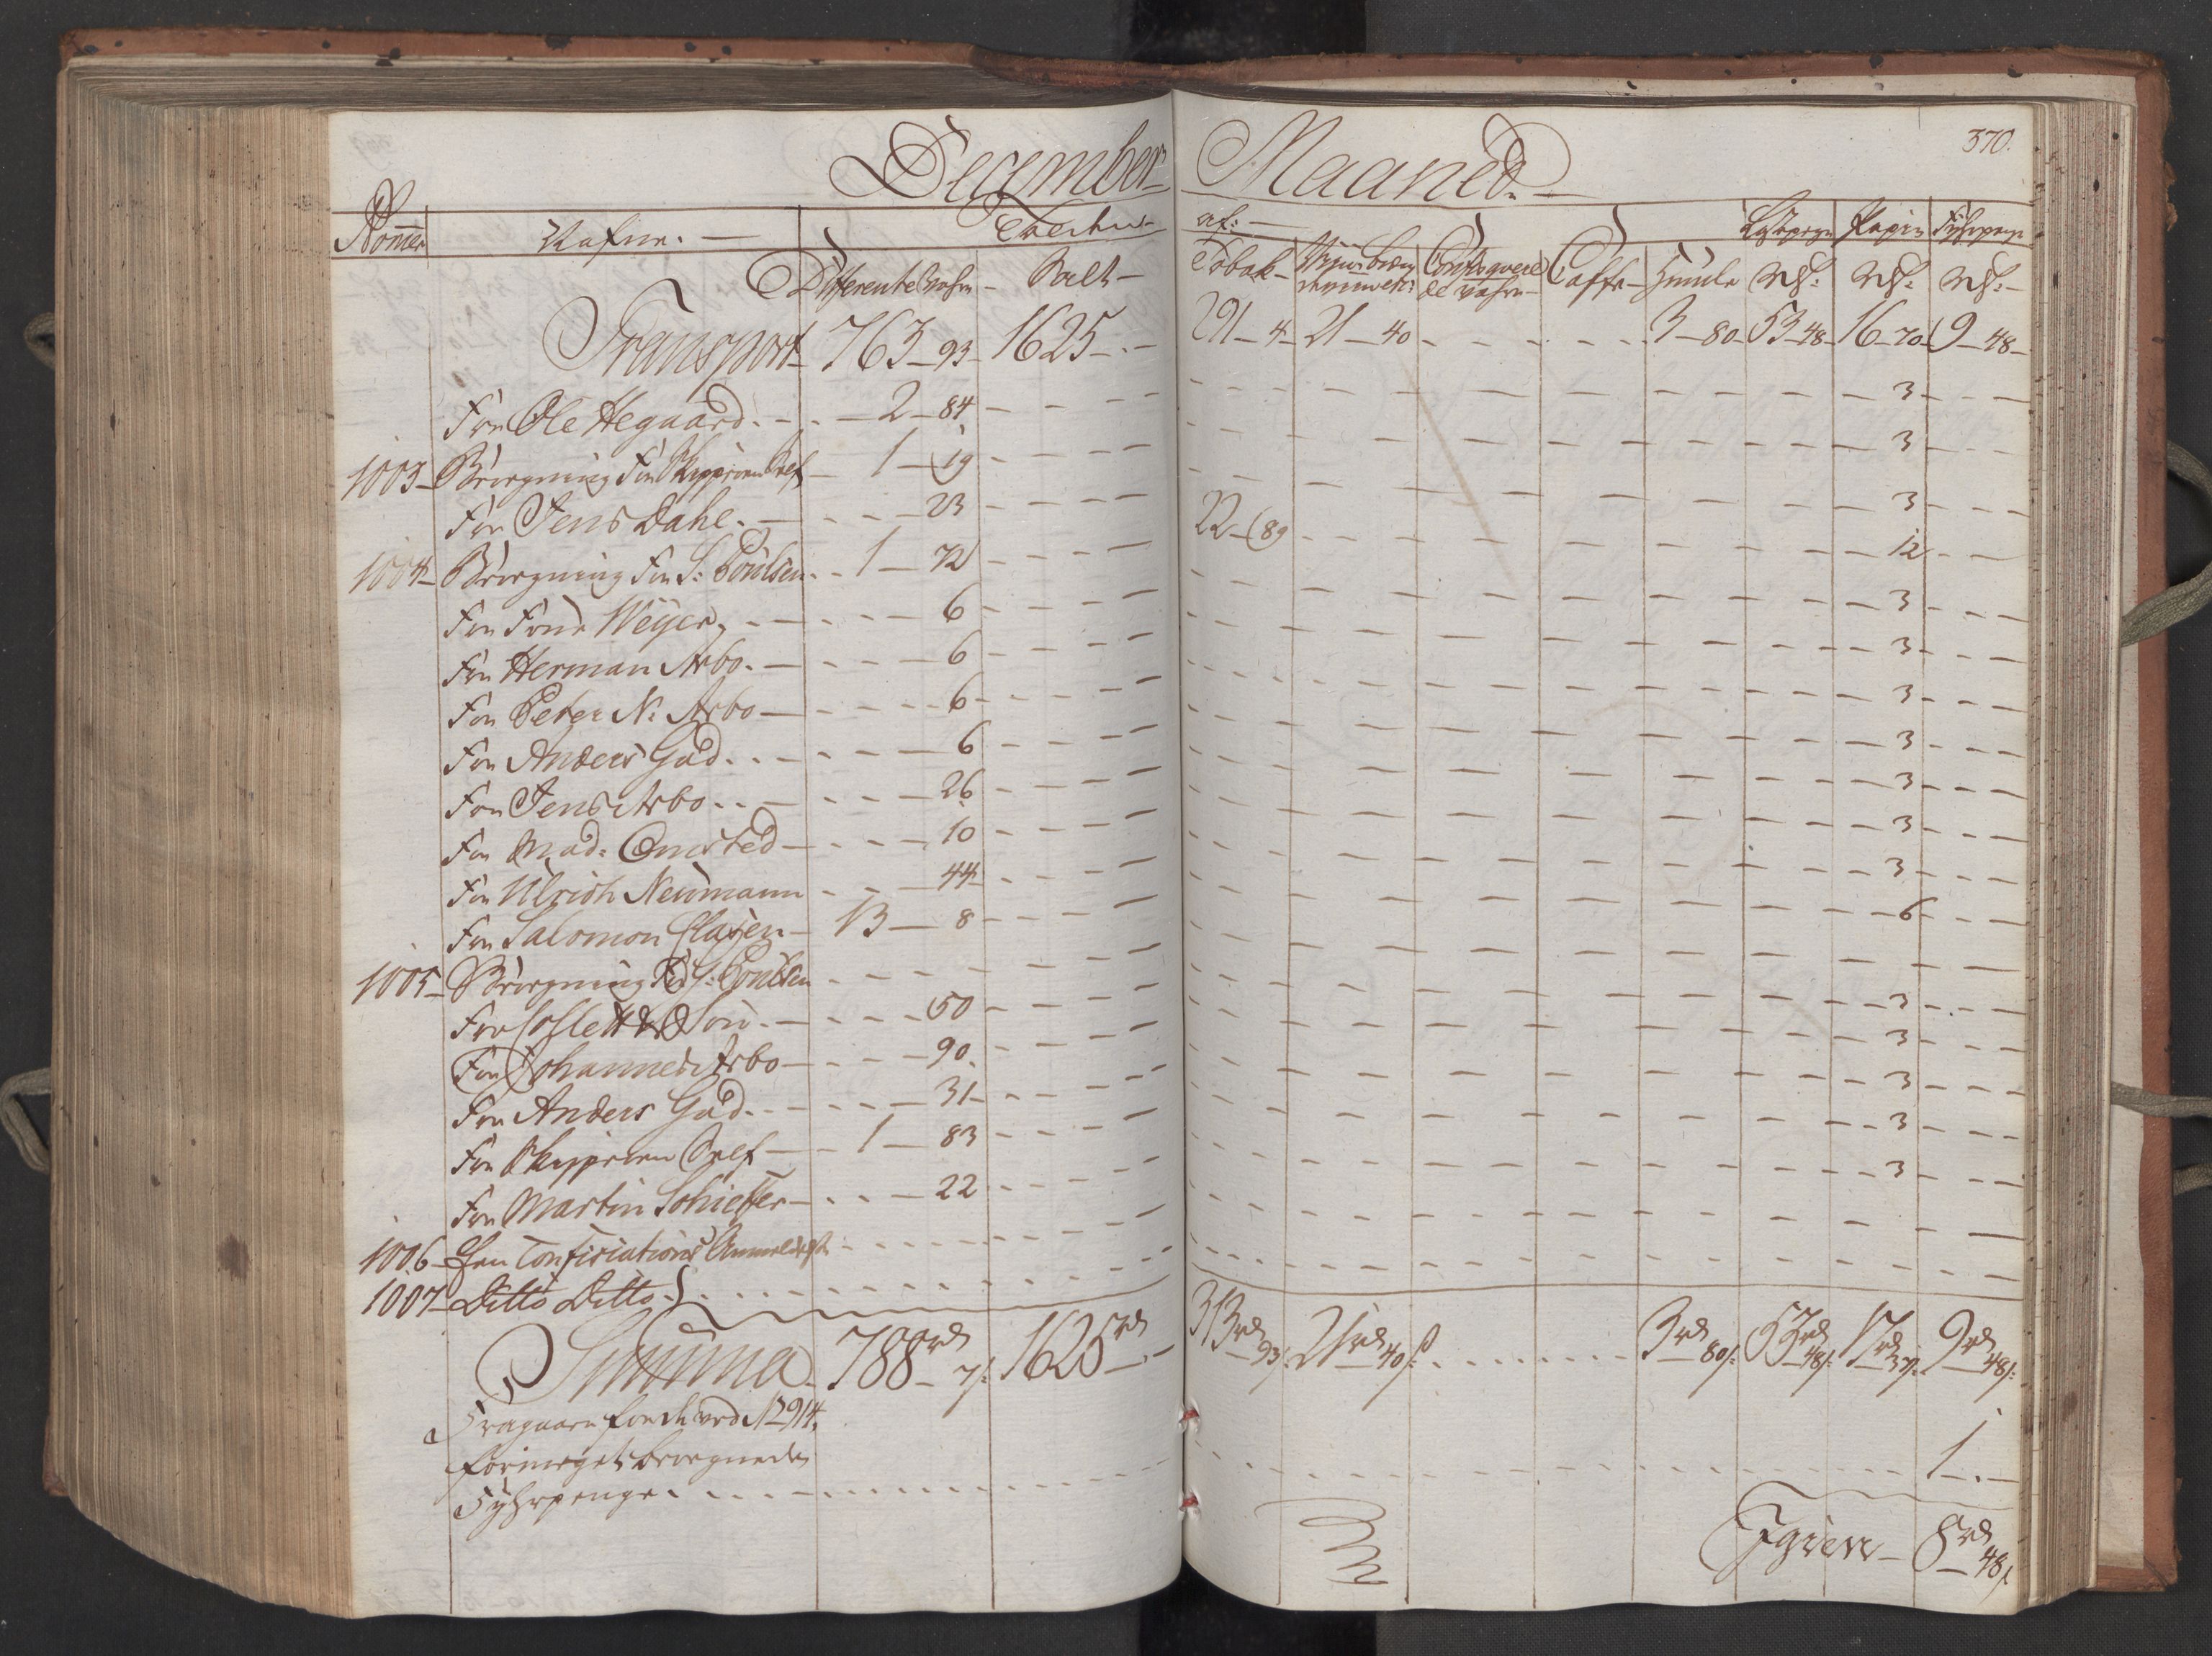 December Maaned.
370.
Nommer Nafne. af:
Differente Vahre Salt Tobak Confisqverede Vahre Caffe Humle Lastepenge Papir Fyhrpenge
Transport 763-93 1625 - . - 291-4 21-40 3-80 53-48 16-70 9-48
For Ole Hegaard. 2-84 3
1003 Beregning For Skipperen Self 1-19 3
For Jens Dahl. 23 3
1004 Beregning For S: Poulsen 1-72 22-89 12
For Weyer 6 3
For Herman Arbo. 6 3
For Peter N: Arbo 6 3
For Anders Gad. 6 3
For Jens Arbo 26 3
For Mad: Omsted 10 3
For Ulrich Neumann 44 3
For Salomon Clasen 13-8 6
1005 Beregning S: Poulsen
For Coslett & Søn. 50 3
For Johannes Arbo 90 3
For Anders Gad 31 3
For Skipperen Self 1-83 3
For Martin Schietter 22 3
1006 En Confiscations Anmeldelse
1007 Ditto Ditto
Summa 788 rd 7 s: 1625 rd - . - 313 rd 93 s: 21 rd 40 s: 3 rd 80 s: 53 rd 48 s: 17 rd 37 s: 9 rd 48 s:
Fragaar No 914
formeget beregnede
Fyhrpenge 1 - . -
Igien 8 rd 48 s